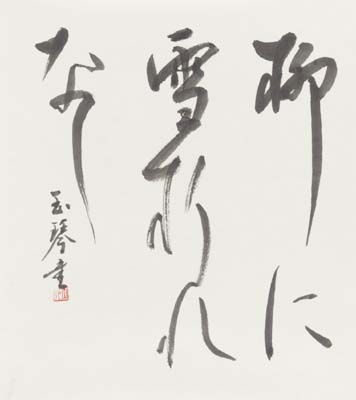 柳に
雪折れ
なし
玉琴書